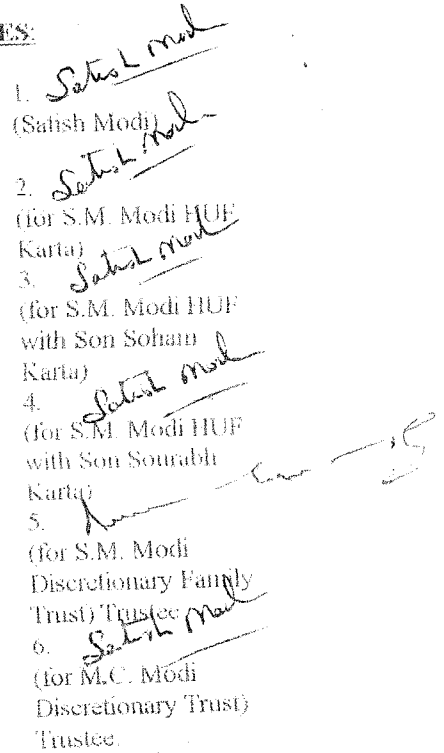 ES:
1. Satish Modi
(Satish Modi)
2. Satish Modi
(for S.M. Modi HUF
Karta)
3. Satish Modi
(for S.M. Modi HUF
with Son Soham
Karta)
4. Satish Modi
(for S.M. Modi HUF
with Son Sourabh
Karta)
5.
(for S.M. Modi
Discretionary Family
Trust) Trustee
6. Satish Modi
(for M.C. Modi
Discretionary Trust)
Trustee.